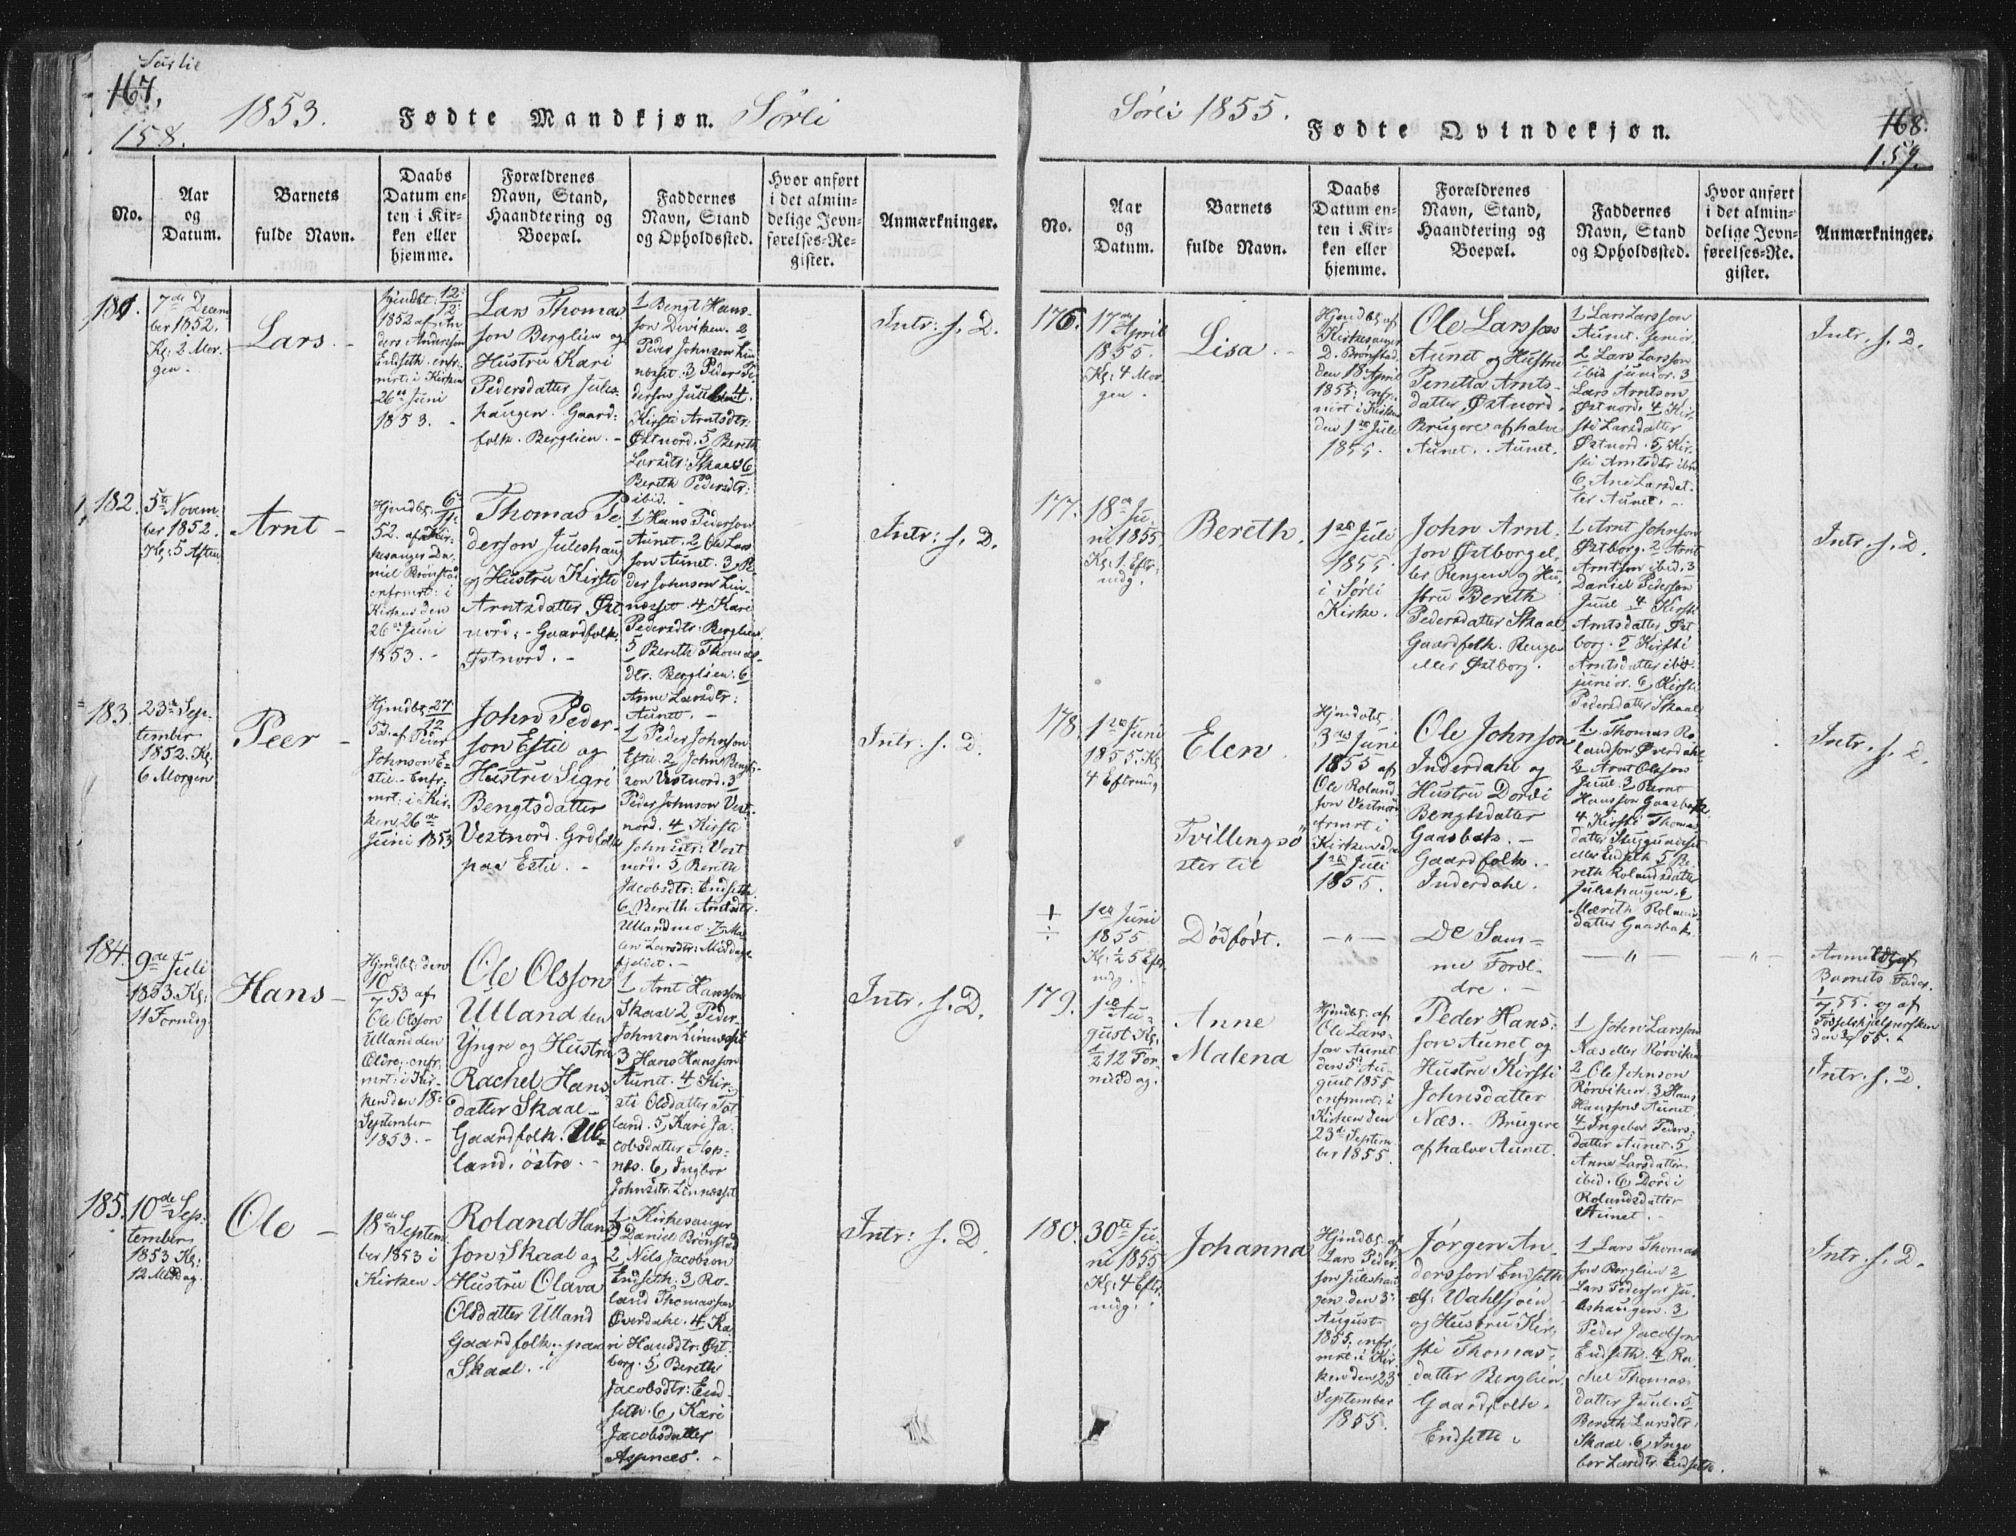 Sørlie
167.
158.
1853. Fødte Mandkjøn. Sørli
No.
Aar
og
Datum.
Barnets
fulde Navn.
Daabs
Datum en-
ten i Kir-
ken eller
hjemme.
Forældrenes
Navn, Stand,
Haandtering og
Boepæl.
Faddernes
Navn, Stand
og Opholdssted.
Hvor anført
i det almin-
delige Jevn-
førelses-Re-
gister.
Anmærkninger.
181.
7de Decem
ber 1852.
Kl: 2 Mor-
gen.
Lars.
Hjmdbt: 12/12
1852 af An-
ders Andersson
Endseth. cnfr-
mrt: i Kirken
26de Juni
1853.
Lars Thomas
son Berglien og
Hustru Kari
Pedersdatter Jules-
haugen. Gaard-
folk. Berglien.
1 Bengt Hans-
son Deviken. 2
Peder Johnson Lin-
næsset. 3 Peder Pe-
derson Juul. 4
Kirsti Arntsdtr:
Østnord. 5 Bereth
Larsdtr: Skaal 6
Bereth Pedersdtr:
ibid.
Intr: f. D.
182.
5te Novem
ber 1852.
Kl: 5 Aften
Arnt
Hjmdbt: 6/11
52. af Kir-
kesanger Da-
niel Brønstad
cnfrmrt: i
Kirken den
26de Juni
1853.
Thomas Pe
derson Juleshaug
og Hustru Kirsti
Arntsdatter Øst
nord. Gaardfolk
Østnord.
1 Hans Pederson
Aunet. 2 Ole Lars
son Aunet. 3, Pe
der Johnson Lin-
næsset. 4 Kari
Pedersdtr: Berglien.
5 Bereth Thomas-
dtr. Berglien. 6
Anne Larsdtr:
Aunet.
Intr: f. D.
183.
23de Sep-
tember
1852. Kl:
6 Morgen
Peer
Hjmdbt: 27/12
52. af Peder
Johnson E-
stil. cnfr-
mrt: i Kir-
ken, 26de
Juni 1853
John Peder-
son Estil og
Hustru Sigri
Bengtsdatter
Vestnord. Grdfolk
paa Estil.
1 Peder Johnson
Estil. 2, John Bengt-
son Vestnord. 3
Peder Johnson Vest-
nord. 4 Kirsti
Johnsdtr: Vest-
nord. 5, Bereth
Jacobsdtr: Endseth.
6, Bereth Arntsdtr.
Ullandmo. 7, Ma-
len Larsdtr: Middags-
fjeldet.
Intr: f. D.
184.
9de Juli
1853. Kl:
11 Formdg.
Hans
Hjmdbt: den
10/7 53 af
Ole Olsson
Ulland den
Eldre. cnfr-
mrt: i Kir-
ken den 18de
September
1853.
Ole Olsson
Ulland den
Yngre og Hustru
Rachel Hans
datter Skaal
Gaardfolk. Ul-
land, østre.
1 Arnt Hansson
Skaal 2, Peder
Johnson Linnæsset
3 Hans Hansson
Aunet. 4 Kir-
sti Olsdatter Tot
land. 5, Kari Ja-
cobsdatter Asp-
næs. 6, Ingbor
Johnsdtr: Linnæsset
Intr. f. D.
185.
10de Sep-
tember
1853 Kl:
12 Middag.
Ole
18de Septem
ber 1853 i
Kirken.
Roland Hans
son Skaal og
Hustru Olava
Olsdatter Ulland
Gaardfolk paa
Skaal.
1. Kirkesanger
Daniel Brønstad
2 Nils Jacobson
Endseth. 3, Ro-
land Thomasson
Øverdahl. 4 Ka-
ri Hansdtr: Øst-
borg. 5, Bereth
Jacobsdtr: End-
seth. 6, Kari
Jacobsdatter
Aspnæs.
Intr: f. D.
Sørli 1855. Fødte Qvindekjøn.
168.
159.
No.
Aar
og
Datum.
Barnets
fulde Navn.
Daabs
Datum en-
ten i Kir-
ken eller
hjemme.
Forældrenes
Navn, Stand,
Haandtering og
Boepæl.
Faddernes
Navn, Stand
og Opholdssted.
Hvor anført
i det almin-
delige Jevn-
førelses-Re-
gister.
Anmærkninger.
176.
17de
April
1855.
Kl: 4 Mor-
gen.
Lisa.
Hjmdbt. af
Kirkesanger
D. Brønstad,
den 18 April
1855. cnfr-
mrt i Kirken
den 1ste Juli
1855.
Ole Larsson
Aunet og Hustru
Penetta Arnts-
datter Østnord.
Brugere af halve
Aunet. Aunet.
1 Lars Larsson
Aunet. senior.
2 Lars Larsson
ibid junior. 3
Lars Arntson
Østnord. 4 Kir-
sti Larsdatter
Østnord. 5, Kir-
sti Arntsdtr ibid
6, Ane Larsdat-
ter Aunet.
Intr. f. D.
177.
18de Ju-
ni 1855
Kl: 1. Eftr-
mdg.
Bereth.
1ste Juli
1855.
i Sørli
Kirke.
John Arnt
son Østborg el-
ler Rengen og Hu-
stru Bereth
Pedersdatter Skaal
Gaardfolk. Rengen
eller Østborg.
1 Arnt Johnson
Østborg. 2 Arnt
Arntson ibid. 3
Daniel Pederson
Juul. 4 Kirsti
Arntsdatter Øst
borg. 5 Kirsti
Arntsdatter ibid
junior. 6, Kirsti
Pedersdatter Skaal
Intr. f. D.
178.
1ste Juni
1855. Kl:
4 Eftrmdg
Elen.
Tvillingsø
ster til
Hjmdbt.
3die Juni
1855 af
Ole Roland
son Vestnord
cnfrmrt i
Kirken den
1ste Juli
1855.
Ole Johnson
Inderdahl og
Hustru Dordi
Bengtsdatter
Gaasbak.
Gaardfolk.
Inderdahl.
1 Thomas Ro-
landson Øverdahl
2 Arnt Olsson
Juul. 3 Bernt
Hansson Gaasbak
4, Kirsti Thomas
datter Skuggundset
eller Endseth 5 Be-
reth Rolandsdatter
Juleshaugen. 6
Mereth Rolands
datter Gaasbak.
Intr. f. D.
1ste Juni
1855
Kl: ½5 Eftr-
mdg.
Dødfødt.
— „ —
De Sam-
me Foræl-
dre.
— „ —
— „ —
Anmeldt af
Barnets Fader
1/7 55. og af
Fødselshjælpersken
den 3/7 55.
179.
1ste Au-
gust Kl:
½12 For-
middag.
Anne
Malena
Hjmdbt. af
Ole Lars-
son Aunet
den 5te Au-
gust 1855
cnfrmrt: i
Kirken den
23de Septem
ber 1855.
Peder Hans-
son Aunet og
Hustru Kirsti
Johnsdatter
Næs. Brugere
af halve Aunet.
1 John Larsson
Næs eller Rørviken
2 Ole Johnson
Rørviken. 3, Hans
Hansson Aunet.
4 Ingebor Peders-
datter Aunet. 5
Anne Larsdatter
ibid. 6, Dordi
Rolandsdatter
Aunet.
Intr. f. D.
180.
30te Ju-
ni 1855
Kl: 4 Eftr-
mdg:
Johanna
Hjmdbt. af
Lars Peder-
son Juleshau
gen. den 3de
August
1855. cnfr-
mrt: i Kir-
ken den 23
September
1855.
Jørgen An-
dersson Endseth
Wahlsjøen
og Hustru Kir-
sti Thomas-
datter Berglien
Gaardfolk.
Endseth.
1 Lars Thomas
son Berglien 2
Lars Pederson Ju-
leshaugen. 3,
Peder Jacobson
Endseth. 4 Ra-
chel Thomas-
datter Juul. 5
Bereth Larsdtr.
Skaal. 6, Inge-
bor Larsdtr. Endseth.
Intr. f. D.